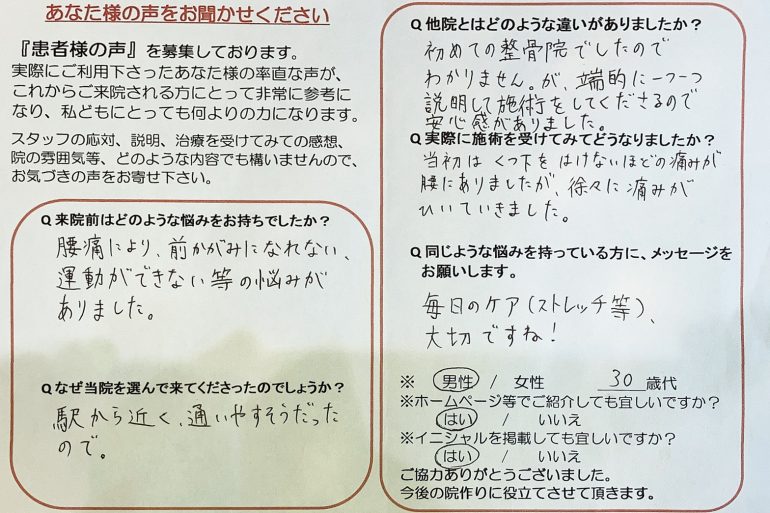 あなた様の声をお聞かせください
『患者様の声』を募集しております。
実際にご利用下さったあなた様の率直な声が、
これからご来院される方にとって非常に参考に
になり、私どもにとっても何よりの力になります。
スタッフの応対、説明、治療を受けてみての感想、
院の雰囲気等、どのような内容でも構いませんので、
お気づきの声をお寄せ下さい。
Q 来院前はどのような悩みをお持ちでしたか？
腰痛により、前かがみになれない、
運動ができない等の悩みが
ありました。
Q なぜ当院を選んで来てくださったのでしょうか？
駅から近く、通いやすそうだった
ので。
Q 他院とはどのような違いがありましたか？
初めての整骨院でしたので
わかりません。が、端的に一つ一つ
説明して施術をしてくださるので
安心感がありました。
Q 実際に施術を受けてみてどうなりましたか？
当初は くつ下を はけないほどの痛みが
腰にありましたが、徐々に痛みが
ひいていきました。
Q 同じような悩みを持っている方に、メッセージを
お願いします。
毎日のケア(ストレッチ等)、
大切ですね！
※ 男性 / 女性 30 歳代
※ホームページ等でご紹介しても宜しいですか？
はい / いいえ
※イニシャルを掲載しても宜しいですか？
はい / いいえ
ご協力ありがとうございました。
今後の院作りに役立てさせて頂きます。